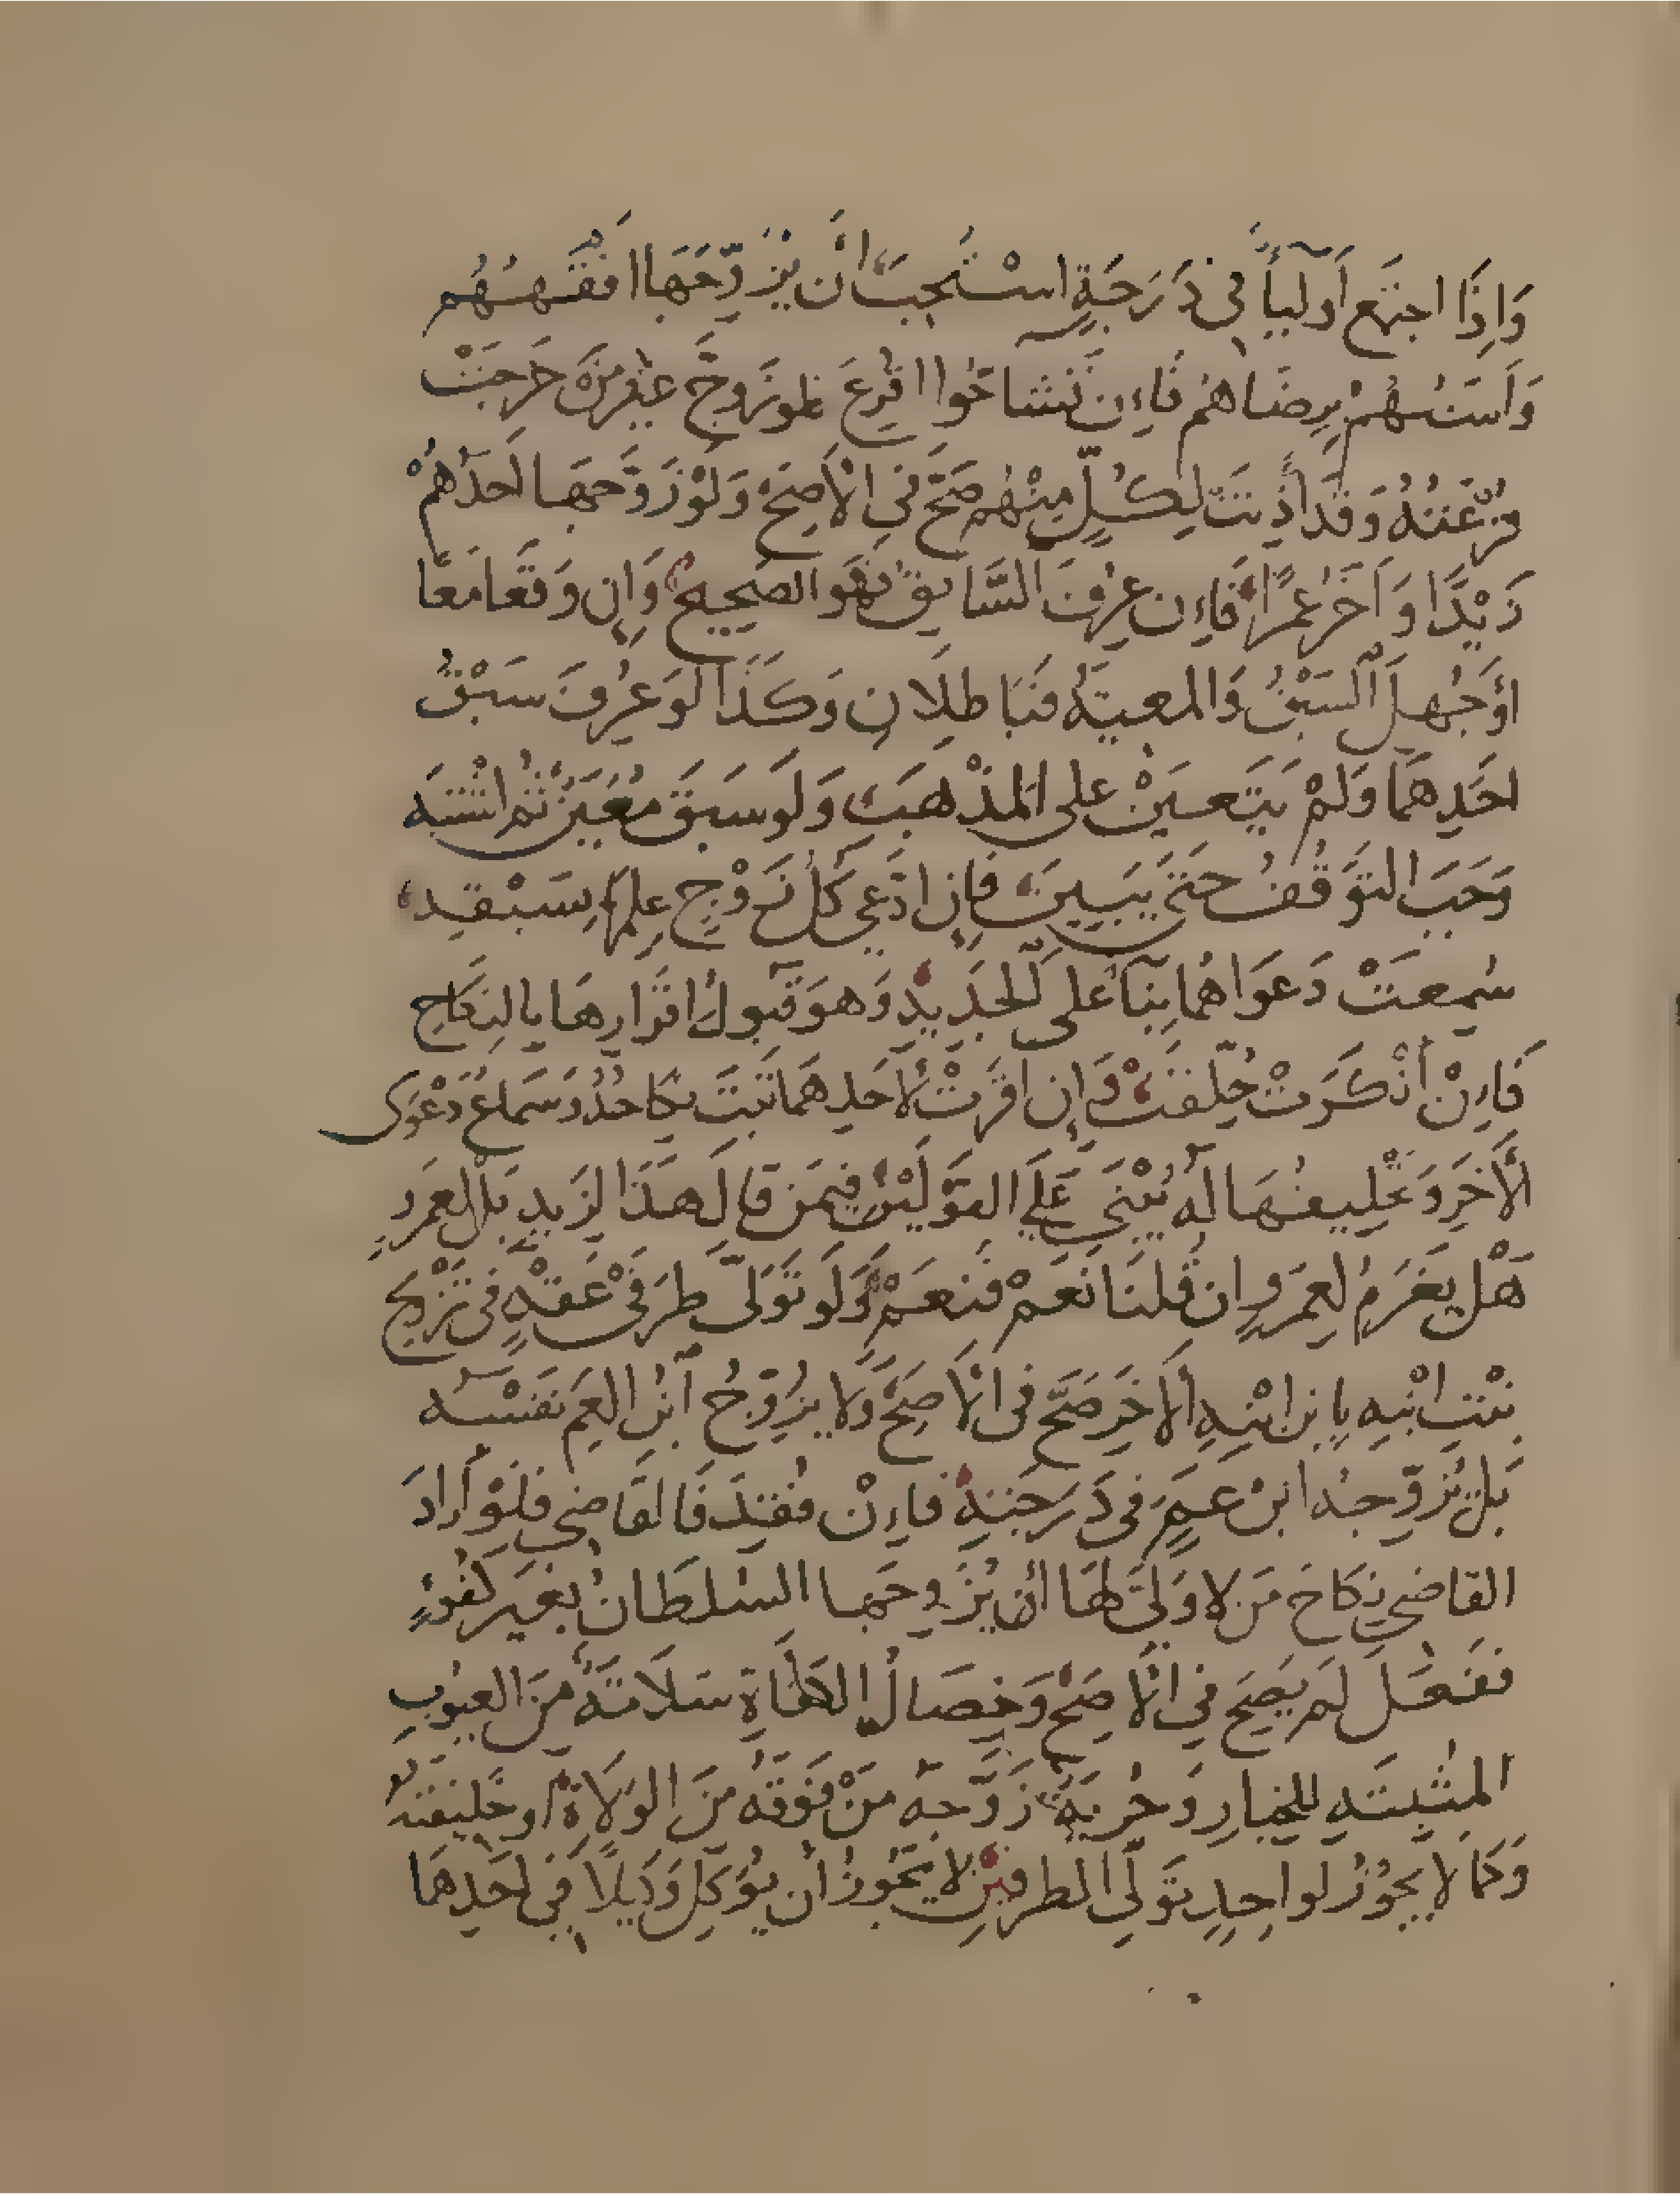 وَاِذَا اجتمَع اَوليآءُ في دَرَجَةٍ استُحِبَّ اَن يُزَوِّجَهَا افقَهُهُم
وَاَسَنُّهُمْ بِرِضَاهُم فَاِن تَشَاحُّوا اقرِعَ فلو زَوَّجَ غيرُ مَن خَرَجَتْ
قُرْعَتُهُ وَقَد اَذِنَت لِكُلٍّ مِنْهُم صَحَّ فِي الْاَصَحِّ وَلَوْ زَوَّجَهَا اَحَدُهُمْ
زَيْدًا وَاَخَرُ عَمرًا فَاِن عُرِفَ السَّابِقُ فَهُوَ الصَحِيحُ وَاِن وَقَعَا مَعًا
اَوْ جُهِلَ السَبْقُ وَالمعيَةُ فَبَاطِلَانِ وَكَذَا لَوْ عُرِفَ سَبْقُ
اَحَدِهمَا وَلَمْ يَتَعيَّنْ على المَذْهَبِ وَلَو سَبَقَ مُعَيَّنٌ ثم اشْتَبَه
وَجَبَ التَوَقُّفُ حتى يَبِينَ فَاِن ادَّعى كُل زَوْجٍ عِلمهَا بِسَبْقِه
سُمِعَتْ دَعوَاهُما بِنَآءً على الجَدِيدِ وَهوَ قَبُولُ اقرَارِهَا بالنِكَاحِ
فَاِنْ اَنْكَرَتْ حُلِّفَتْ وَاِن اقَرَّتْ لِاَحَدِهمَا ثَبَتَ نِكَاحُهُ وَسَمَاعُ دَعْوَى
الْاَخَرِ وَتَحْلِيفُهَا لَهُ يُبْنَى عَلَى القَوْلَيْنِ فِيمَن قَالَ هَذَا لِزَيدٍ بَل لِعَمرٍو
هَلْ يَغرَمُ لِعمرٍو اِن قُلنَا نَعَمْ فَنَعَمْ وَلَو تَوَلَّى طَرَفَيْ عَقدٍ فِي تَزْوِيجِ
بِنْتِ ابْنِهِ بِابنِ ابْنِهِ الاَخَرِ صَحَّ فِي الْاَصَحِّ وَلَا يُزَوِّجُ ابنُ العَم نَفْسَهُ
بَل يُزَوِّجهُ ابنُ عَمٍّ فِي دَرَجَتِهِ فَاِنْ فُقِدَ فَالقَاضِي فَلَوْ اَرَادَ
القاضي نِكَاحَ مَن لا وَلِيَّ لهَا اَن يُزَوِجَهَا السُلطَانُ بغَيرِ كُفُوءٍ
فَفَعَلَ لَم يَصِحَّ فِي الْاَصَحِّ وَخِصَالُ الكفَاةِ سَلَامَةٌ مِنَ العيُوبِ
المثبِتَهِ للخِيارِ وَحُرِيَةٌ زَوَّجَهُ مَنْ فَوْقَهُ مِنَ الوُلَاةِ او خَلِيفَتُهُ
وَكَمَا لَا يجُوْزُ لِواحِدٍ تَوَلِّي الطرفَيْنِ لا يَجُوزُ اَن يُوَكِّلَ وَكِيلًا فِي اَحَدِهَما